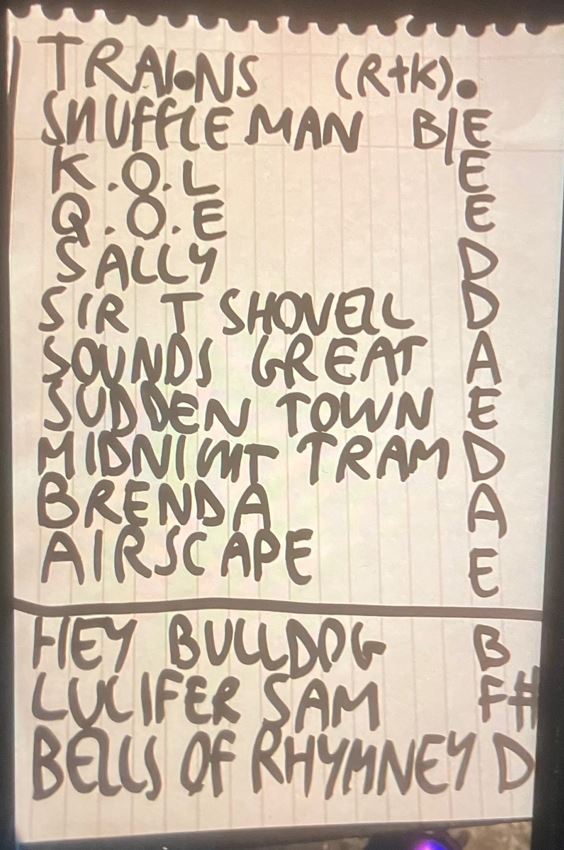 TRAINS (R+K).
SHUFFLE MAN B/E
K.O.L E
Q.O.E E
SALLY D
SIR T SHOVELL D
SOUNDS GREAT A
SUDDEN TOWN E
MIDNIGHT TRAM D
BRENDA A
AIRSCAPE E
HEY BULLDOG B
LUCIFER SAM F#
BELLS OF RHYMNEY D